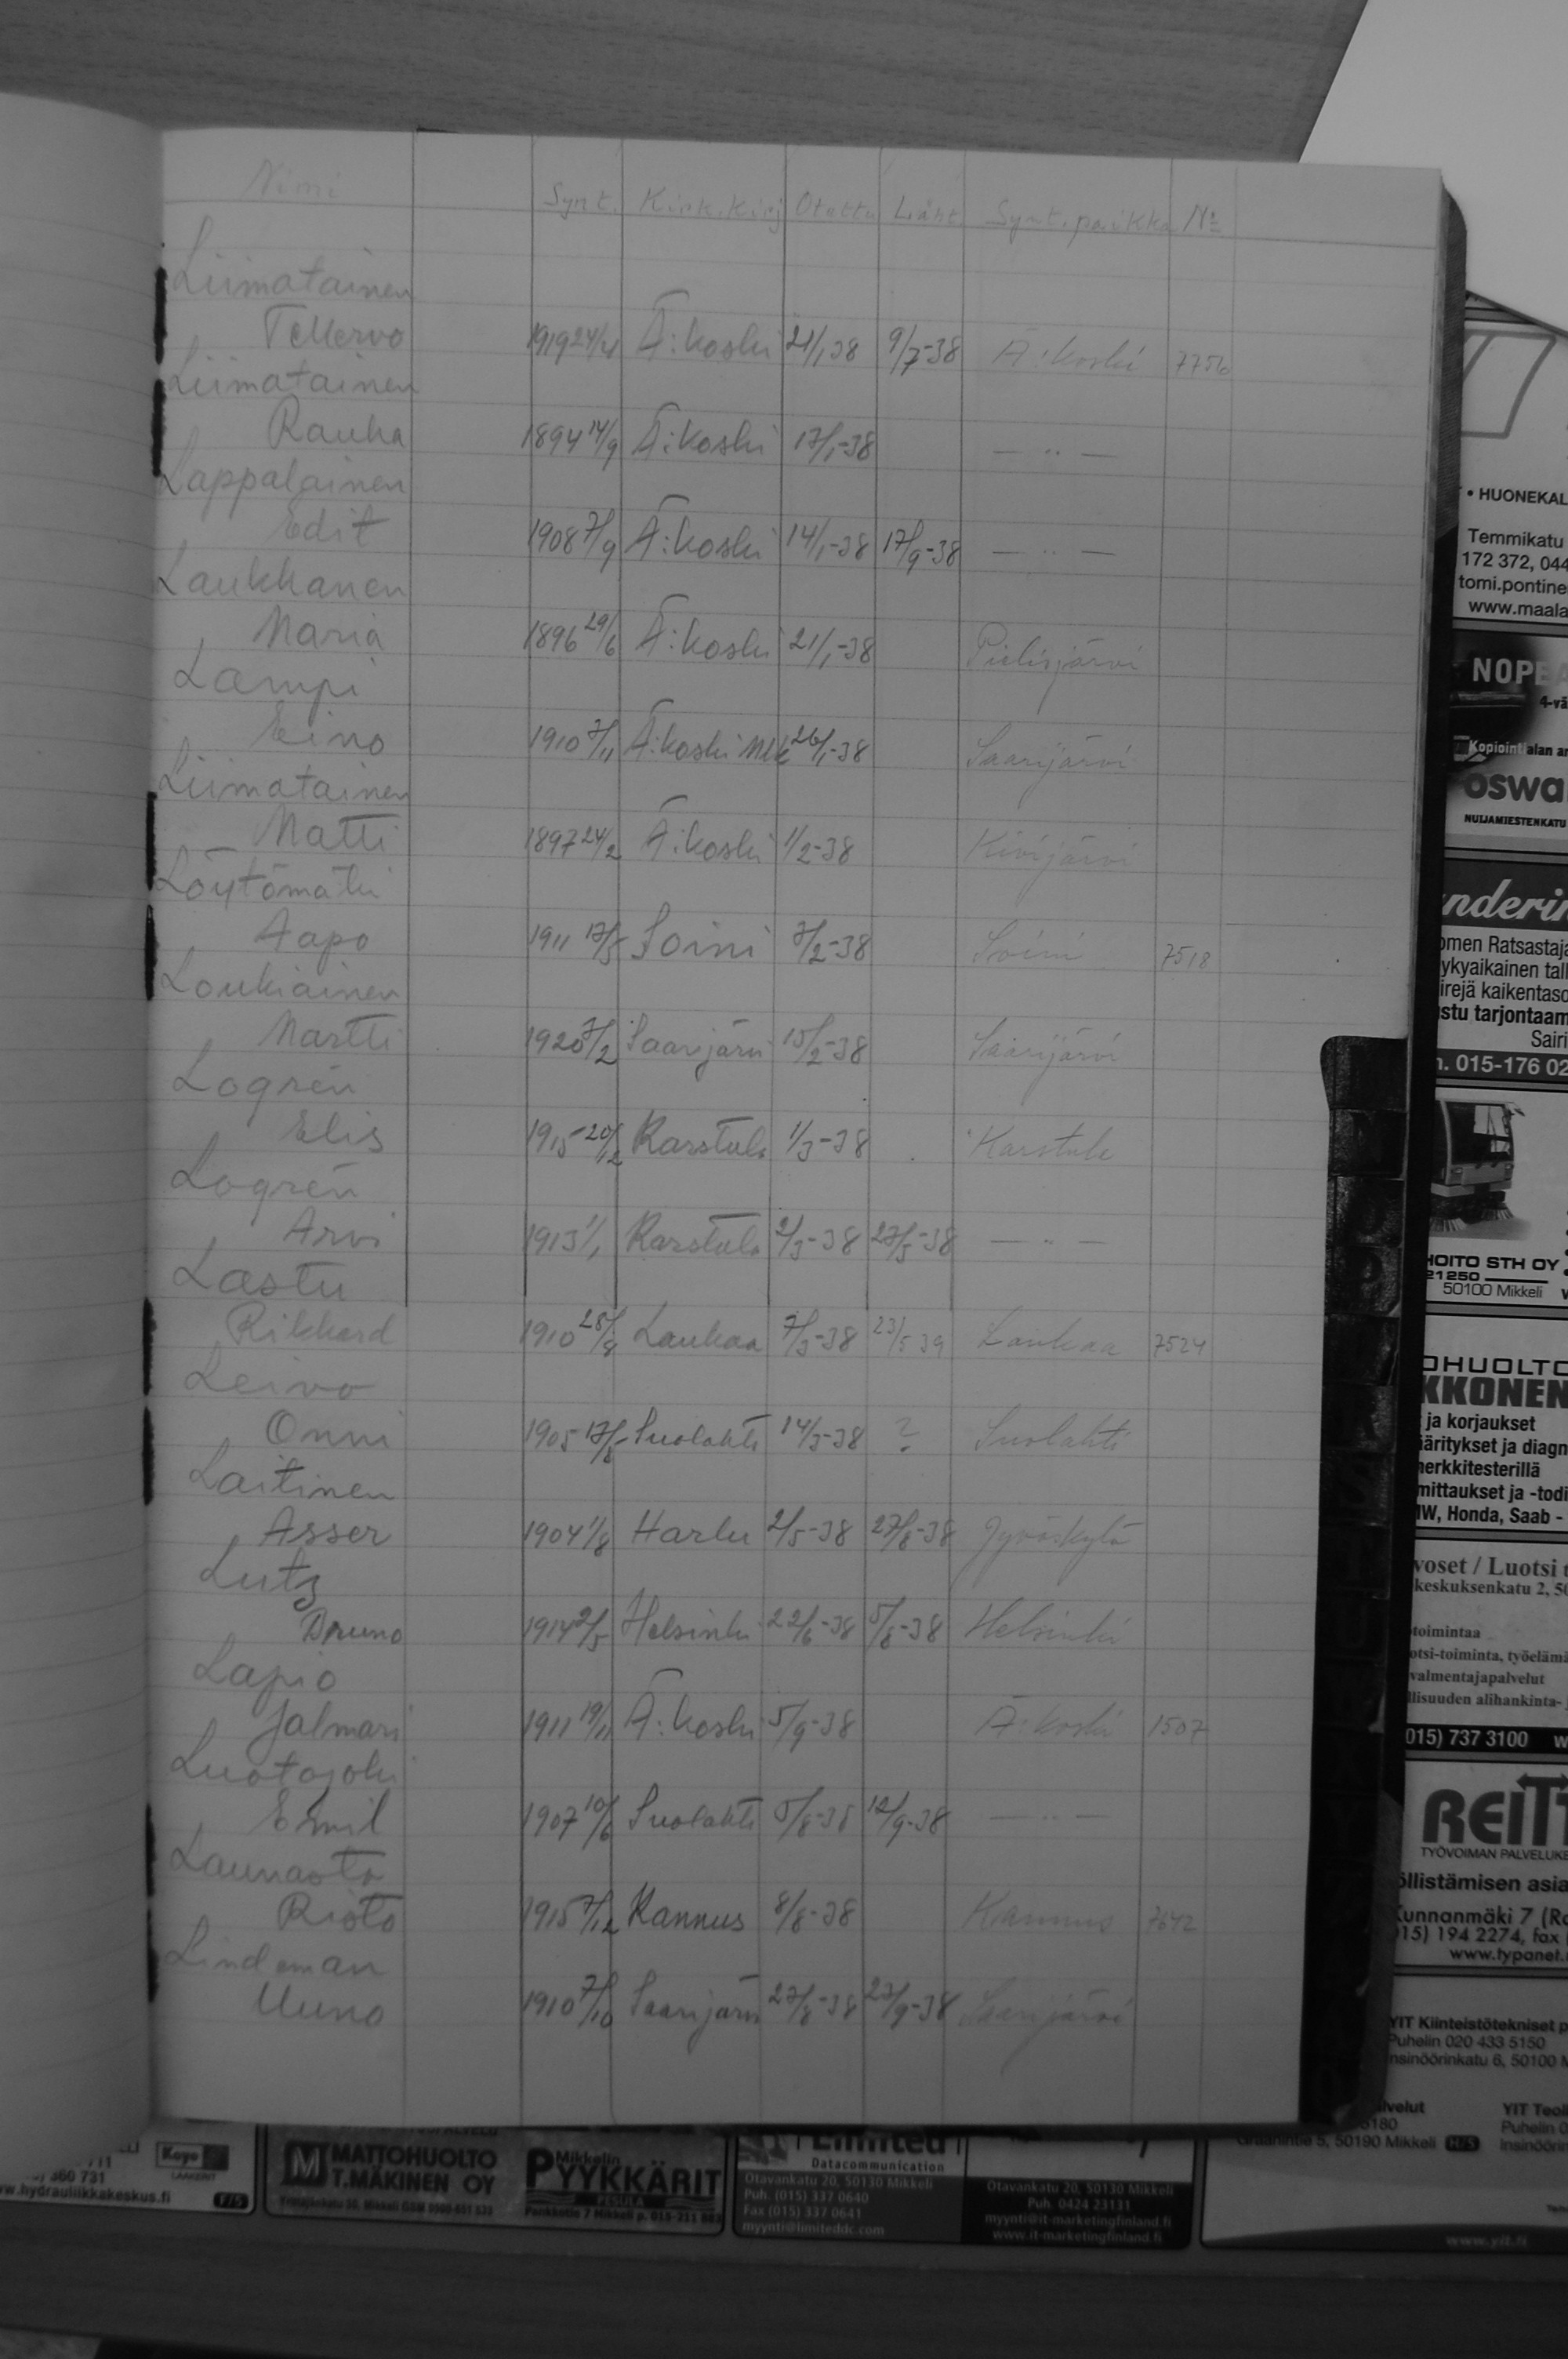 Nimi Synt. Kirk.kirj Otettu Läht. Synt.paikka No
Liimatainen
Tellervo 1919 24/4 Ä:koski 21/1 38 9/7-38 Ä:koski 7756
Liimatainen
Rauha 1894 14/9 Ä:koski 17/1-38 — ·· —
Lappalainen
Edit 1908 7/9 Ä:koski 14/1-38 17/9-38 — ·· —
Laukkanen
Maria 1896 29/6 Ä:koski 21/1-38 Pielisjärvi
Lampi
Eino 1910 7/11 Ä:koski Mlk 26/1-38 Saarijärvi
Liimatainen
Matti 1897 24/2 Ä:koski 1/2-38 Kivijärvi
Löytömäki
Aapo 1911 17/5 Soini 7/2-38 Soini 7518
Loukiainen
Martti 1920 7/2 Saarijärvi 15/2-38 Saarijärvi
Logrén
Elis 1915-20/12 Karstula 1/3-38 Karstula
Logrén
Arvi 1913 1/1 Karstula 2/3-38 27/5-38 — ·· —
Lastu
Rikkard 1910 28/8 Laukaa 7/3-38 23/5 39 Laukaa 7524
Leivo
Onni 1905 17/8 Suolahti 14/3-38 ? Suolahti
Laitinen
Asser 1904 1/8 Harlu 2/5-38 27/8-38 Jyväskylä
Lutz
Bruno 1914 2/5 Helsinki 22/6-38 5/8-38 Helsinki
Lapio
Jalmari 1911 19/11 Ä:koski 5/9-38 Ä:koski 1507
Luotojoki
Emil 1907 10/6 Suolahti 5/8-38 12/9-38 — ·· —
Launasto
Risto 1915 7/12 Kannus 8/8-38 Kannus 7642
Lindeman
Uuno 1910 7/10 Saarijärvi 27/8-38 23/9-38 Saarijärvi
• HUONEKAL
Temmikatu
172 372, 044
tomi.pontine
www.maala
NOPEA
4-vä
Kopiointialan
oswa
NUIJAMIESTENKATU
nderin
omen Ratsastaja
ykyaikainen tall
irejä kaikentaso
stu tarjontaam
Sairi
n. 015-176 02
HOITO STH OY
21250
50100 Mikkeli
OHUOLTO
KKONEN
ja korjaukset
ääritykset ja diagn
merkkitesterillä
mittaukset ja -todi
MW, Honda, Saab -
voset / Luotsi t
keskuksenkatu 2, 50
toimintaa
otsi-toiminta, työelämä
valmentajapalvelut
llisuuden alihankinta-
015) 737 3100
REITT
TYÖVOIMAN PALVELUKE
öllistämisen asia
Kunnanmäki 7 (Ro
015) 194 2274, fax
www.typanet.
YIT Kiinteistötekniset p
Puhelin 020 433 5150
Insinöörinkatu 6, 50100 M
YIT Teoll
Puhelin
Insinöörin
5, 50190 Mikkeli
www.yit.fi
360 731
w.hydrauliikkakeskus.fi
MATTOHUOLTO
T.MÄKINEN OY
Mikkelin
PYYKKÄRIT
PESULA
Pankkotie 7 Mikkeli
Limited
Datacommunication
Otavankatu 20, 50130 Mikkeli
Puh. (015) 337 0640
Fax (015) 337 0641
myynti@limiteddc.com
Otavankatu 20, 50130 Mikkeli
Puh. 0424 23131
myynti@it-marketingfinland.fi
www.it-marketingfinland.fi